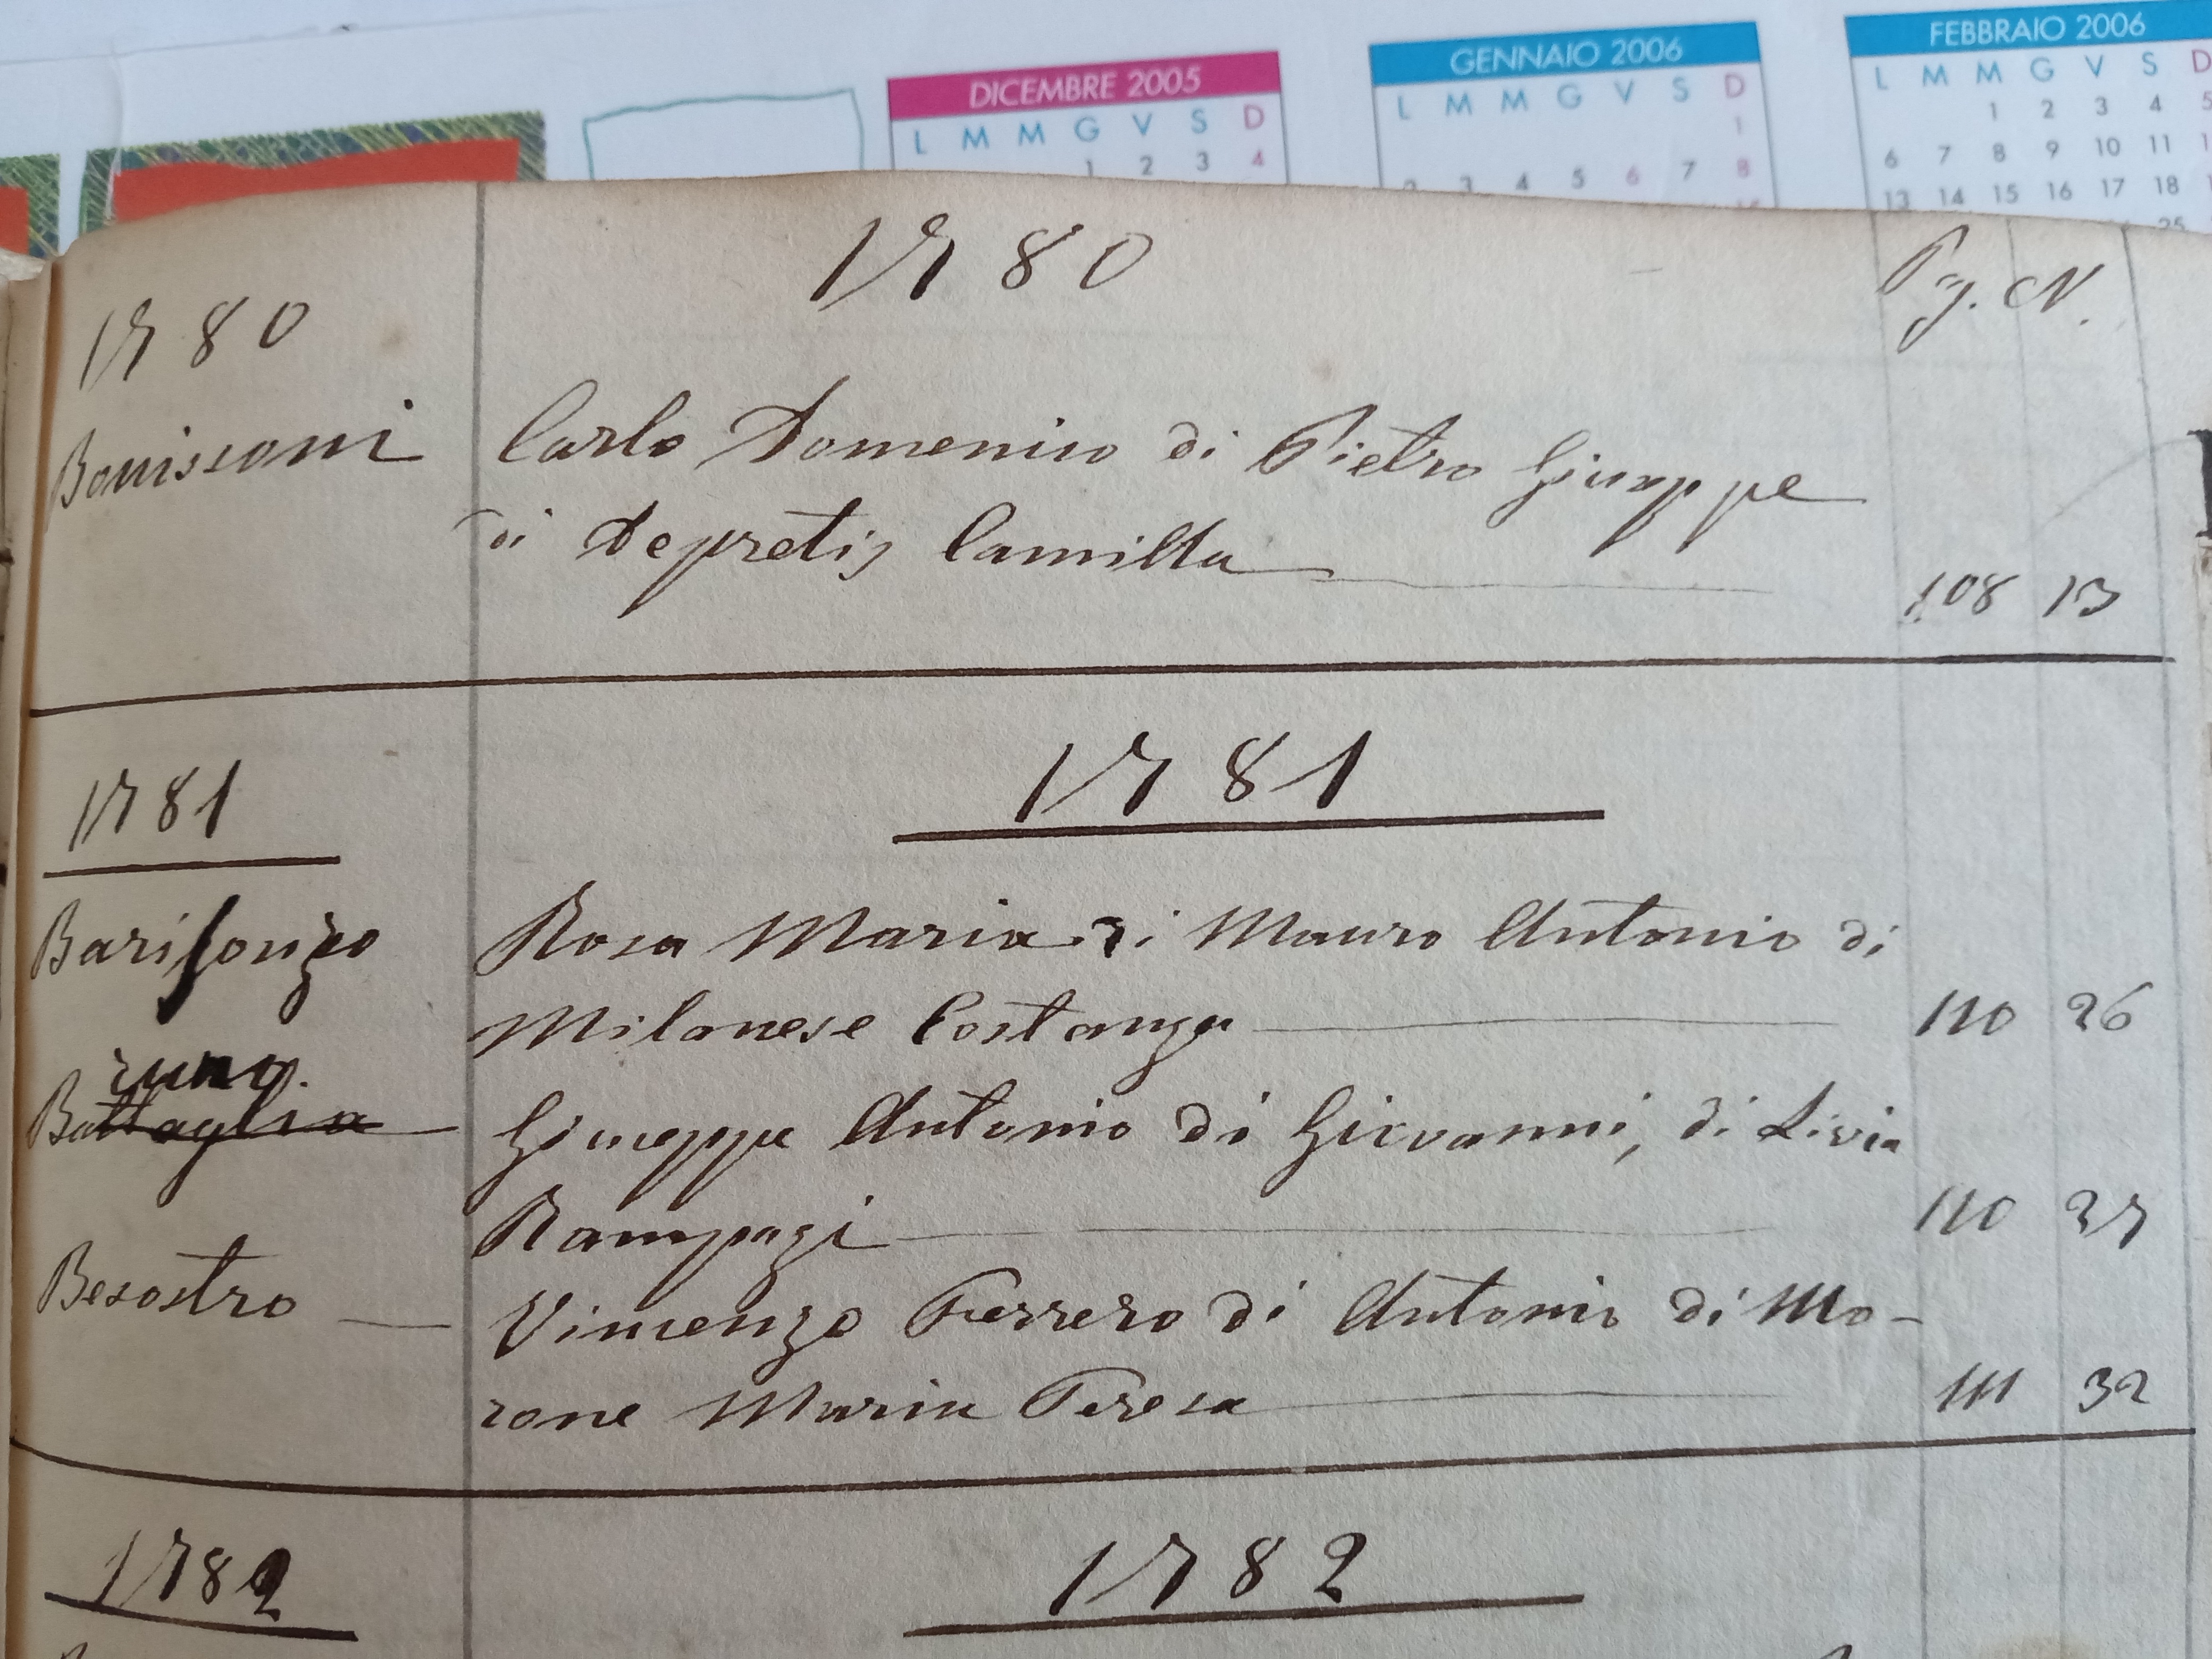 DICEMBRE 2005
L M M G V S D
1 2 3 4
GENNAIO 2006
L M M G V S D
1
2 3 4 5 6 7 8
FEBBRAIO 2006
L M M G V S D
1 2 3 4 5
6 7 8 9 10 11
13 14 15 16 17 18
25
1780 1780 Pag. N.
Bonissoni Carlo Domenico di Pietro Giuseppe
di Depretis Camilla 108 13
1781 1781
Barisonzo Rosa Maria di Mauro Antonio di
Milanese Costanza 110 26
Battaglia Giuseppe Antonio di Giovanni, di Livia
Rampazi 110 27
Besostro Vincenzo Ferrero di Antonio di Mo-
rone Maria Teresa 111 32
1782 1782